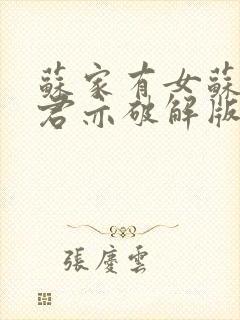 蘇家有女蘇
君亦破解版
張慶雲